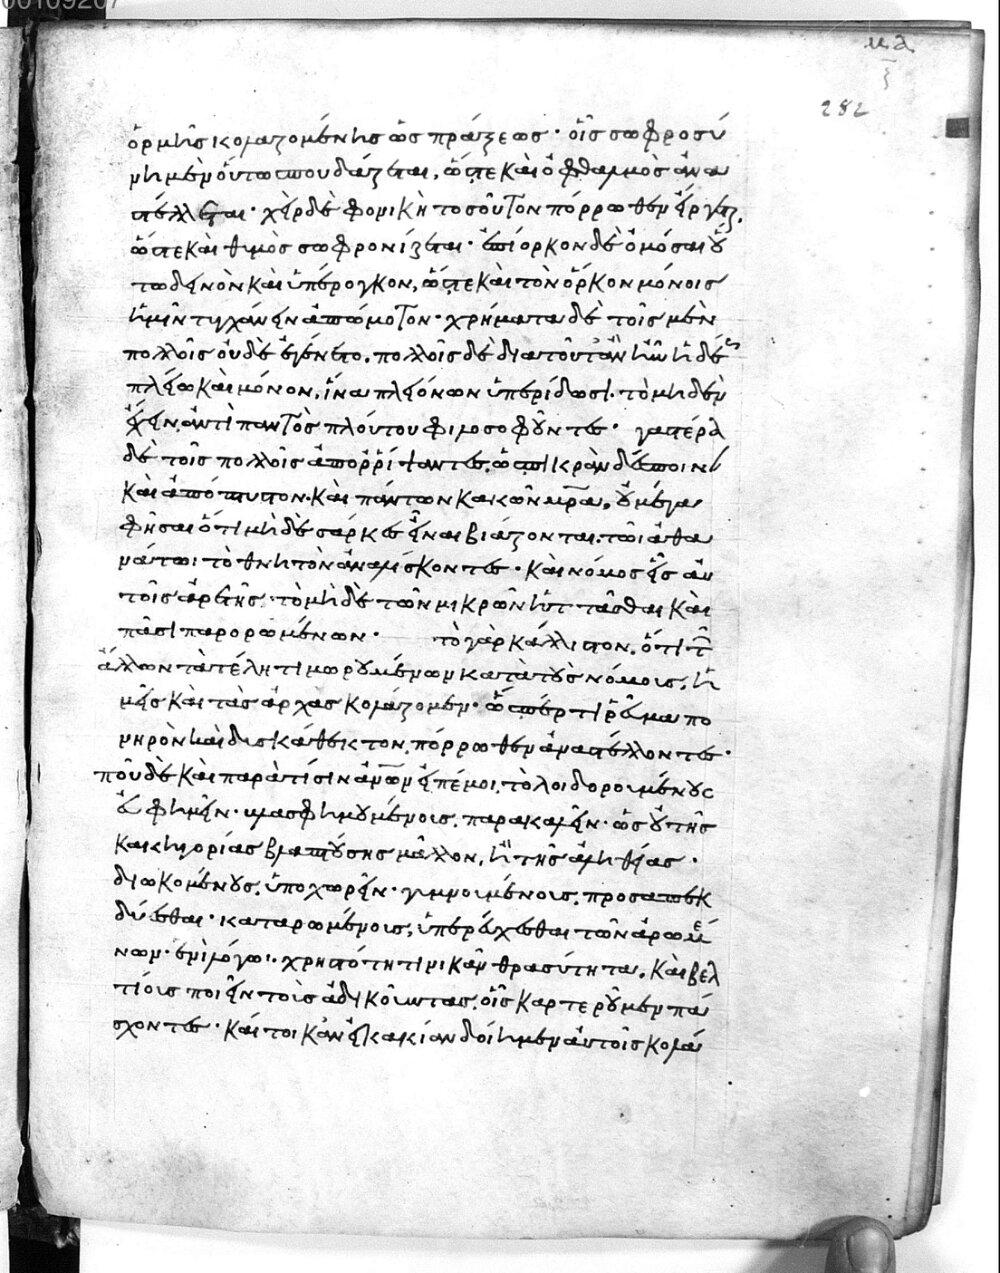 ὀργῆς κολαζομένης ὡς πράξεως· οἷς σωφροσύ
νη μὲν οὕτω σπουδάζεται, ὥστε καὶ ὀφθαλμὸς ἀνα
στέλλεται· χεὶρ δὲ φονικὴ τοσοῦτον πόρρωθεν εἴργεται,
ὥστε καὶ θυμὸς σωφρονίζεται· ἐπίορκον δὲ ὀμόσαι οὕ
τω δεινὸν καὶ ὑπέρογκον, ὥστε καὶ τὸν ὅρκον μόνοις
ἡμῖν τυγχάνειν ἀπώμοτον· χρήματα δὲ τοῖς μὲν
πολλοῖς οὐδὲ ἐγένετο, πολλοῖς δὲ διὰ τοῦτ' ἂν ἦν ἡδέως
πλείω καὶ μόνον, ἵνα πλειόνων ὑπερίδωσι· τὸ μηδὲν
ἔχειν, ἀντὶ παντὸς πλούτου φιλοσοφοῦντες· γαστέρα
δὲ τοῖς πολλοῖς ἀπορρίψαντες, ὡς πικρὰν δέσποιναν
καὶ ἀπόπτυστον. καὶ πάντων κακῶν μρα, οὐ μέγα
φῆσαι ὅτι μηδὲ σάρκες εἶναι βιάζονται. τῶι ἀθα
νάτωι τὸ θνητὸν ἀναλίσκοντες· καὶ νόμος εἷς αὐ
τοῖς ἀρετῆς, τὸ μηδὲ τῶν μικρῶν ἡττᾶσθαι καὶ
πᾶσι παρορωμένων· τὸ γὰρ κάλλιστον, ὅτι τῶν
ἄλλων τὰ τέλη τιμωρουμένων κατὰ τοὺς νόμους, ἡ
μεῖς καὶ τὰς ἀρχὰς κολάζομεν· ὥσπερ τι ῥεῦμα πο
νηρὸν καὶ δυσκάθεκτον, πόρρωθεν ἀναστέλλοντες·
ποῦ δὲ καὶ παρὰ τίσιν ἀνων εἰπέ μοι, τὸ λοιδορουμένους
εὐφημεῖν· βλασφημουμένους, παρακαλεῖν· ὡς οὐ τῆς
κατηγορίας βλαπτούσης μᾶλλον, ἢ τῆς ἀληθείας·
διωκομένους, ὑποχωρεῖν· γυμνουμένους, προσαπεκ
δύεσθαι· καταρωμένοις, ὑπερεύχεσθαι τῶν ἀρωμέ
νων· ἑνὶ λόγωι· χρηστότητι νικᾶν θρασύτητα, καὶ βελ
τίους ποιεῖν τοὺς ἀδικοῦντας, οἷς καρτεροῦμεν πά
σχοντες· καίτοι κἂν εἰ κακίαν δοίημεν αὐτοῖς κολά
282